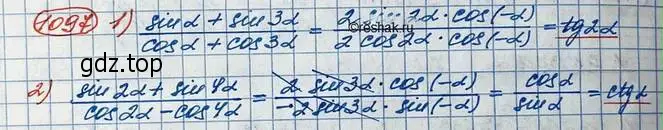 1097 1) sinα + sin3α / cosα + cos3α = 2 sin2α · cos(-α) / 2 cos2α · cos(-α) = tg2α
©reshak.ru
gdz.top
2) sin2α + sin4α / cos2α - cos4α = 2 sin3α · cos(-α) / -2 sin3α · sin(-α) = cosα / sinα = ctgα